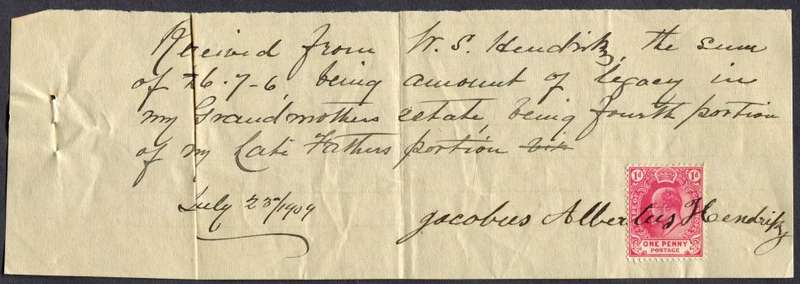 Received from W. S. Hendrikz, the sum
of £6-7-6, being amount of legacy in
my Grandmothers estate, being fourth portion
of my Late Fathers portion
July 23/1909
Jacobus Albertus Hendrikz
1d 1d
ONE PENNY
POSTAGE